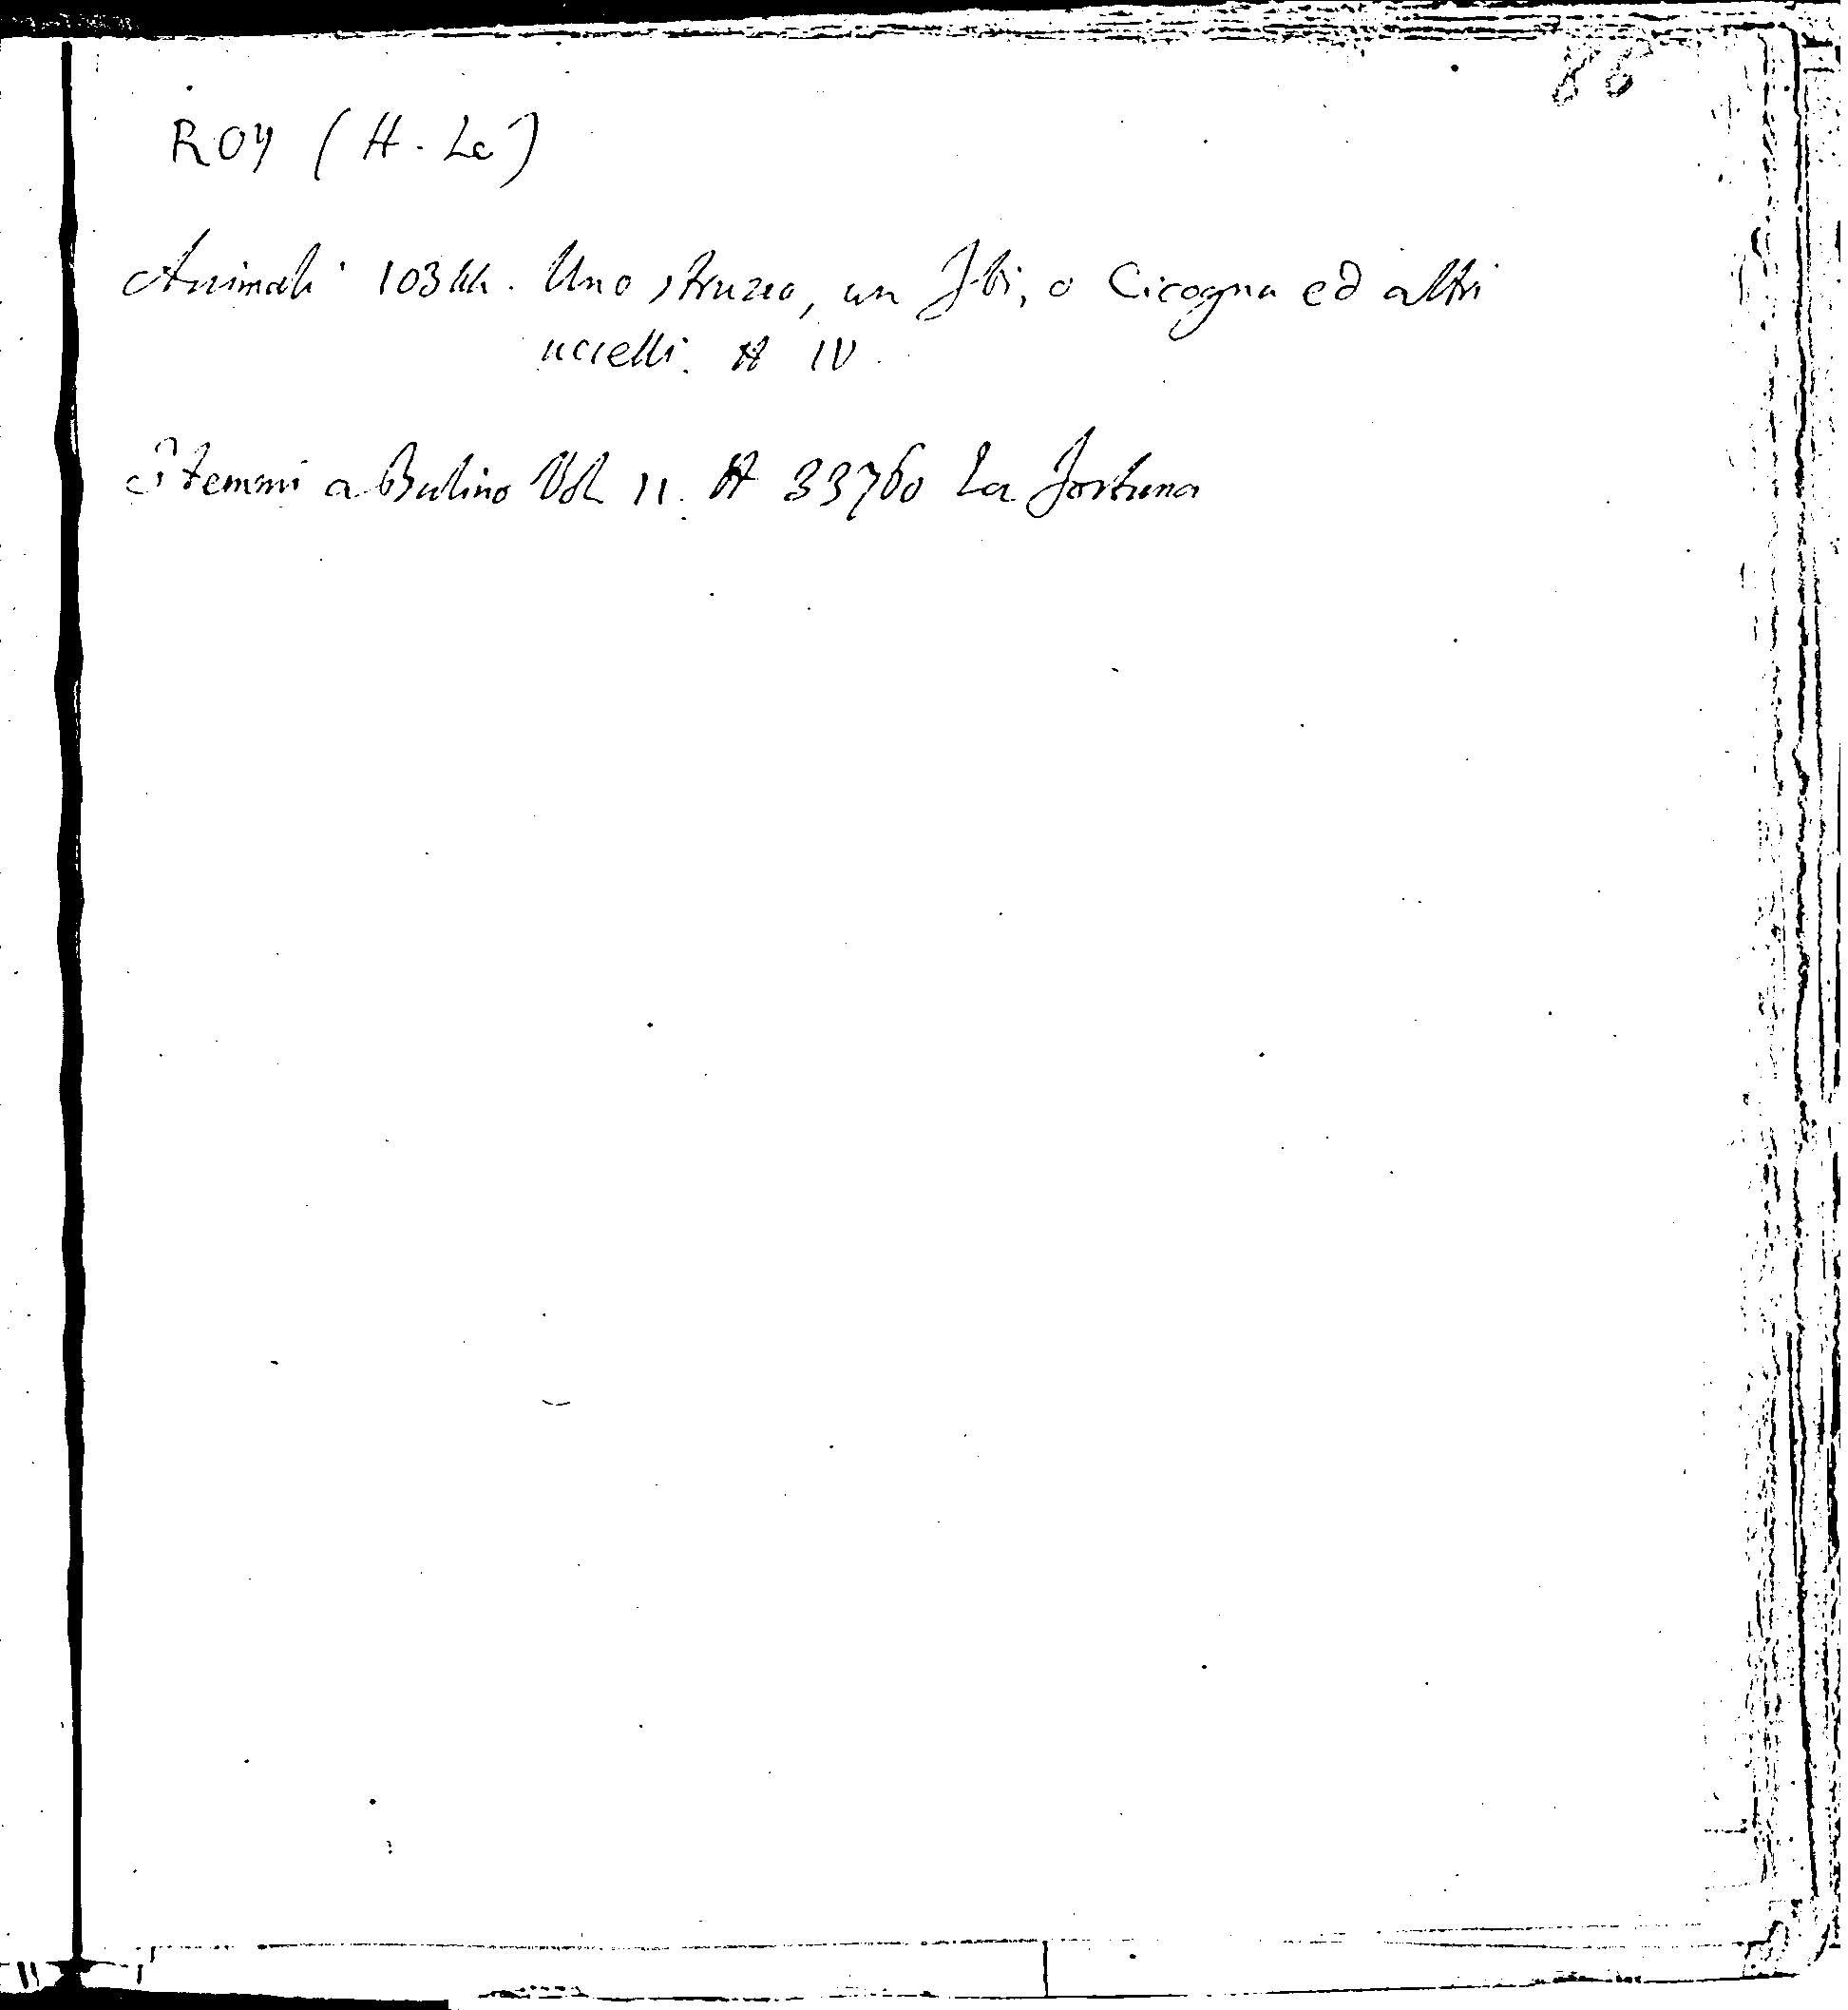 86
ROY (H. Le)
Animali 10344. Uno struzzo, un Ibi, o Cicogna ed altri
uccelli. A IV.
Stemmi a Bulino Vol. II. A 33760 La Fortuna